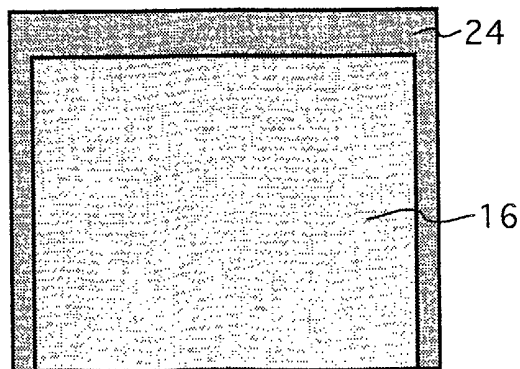 24
16